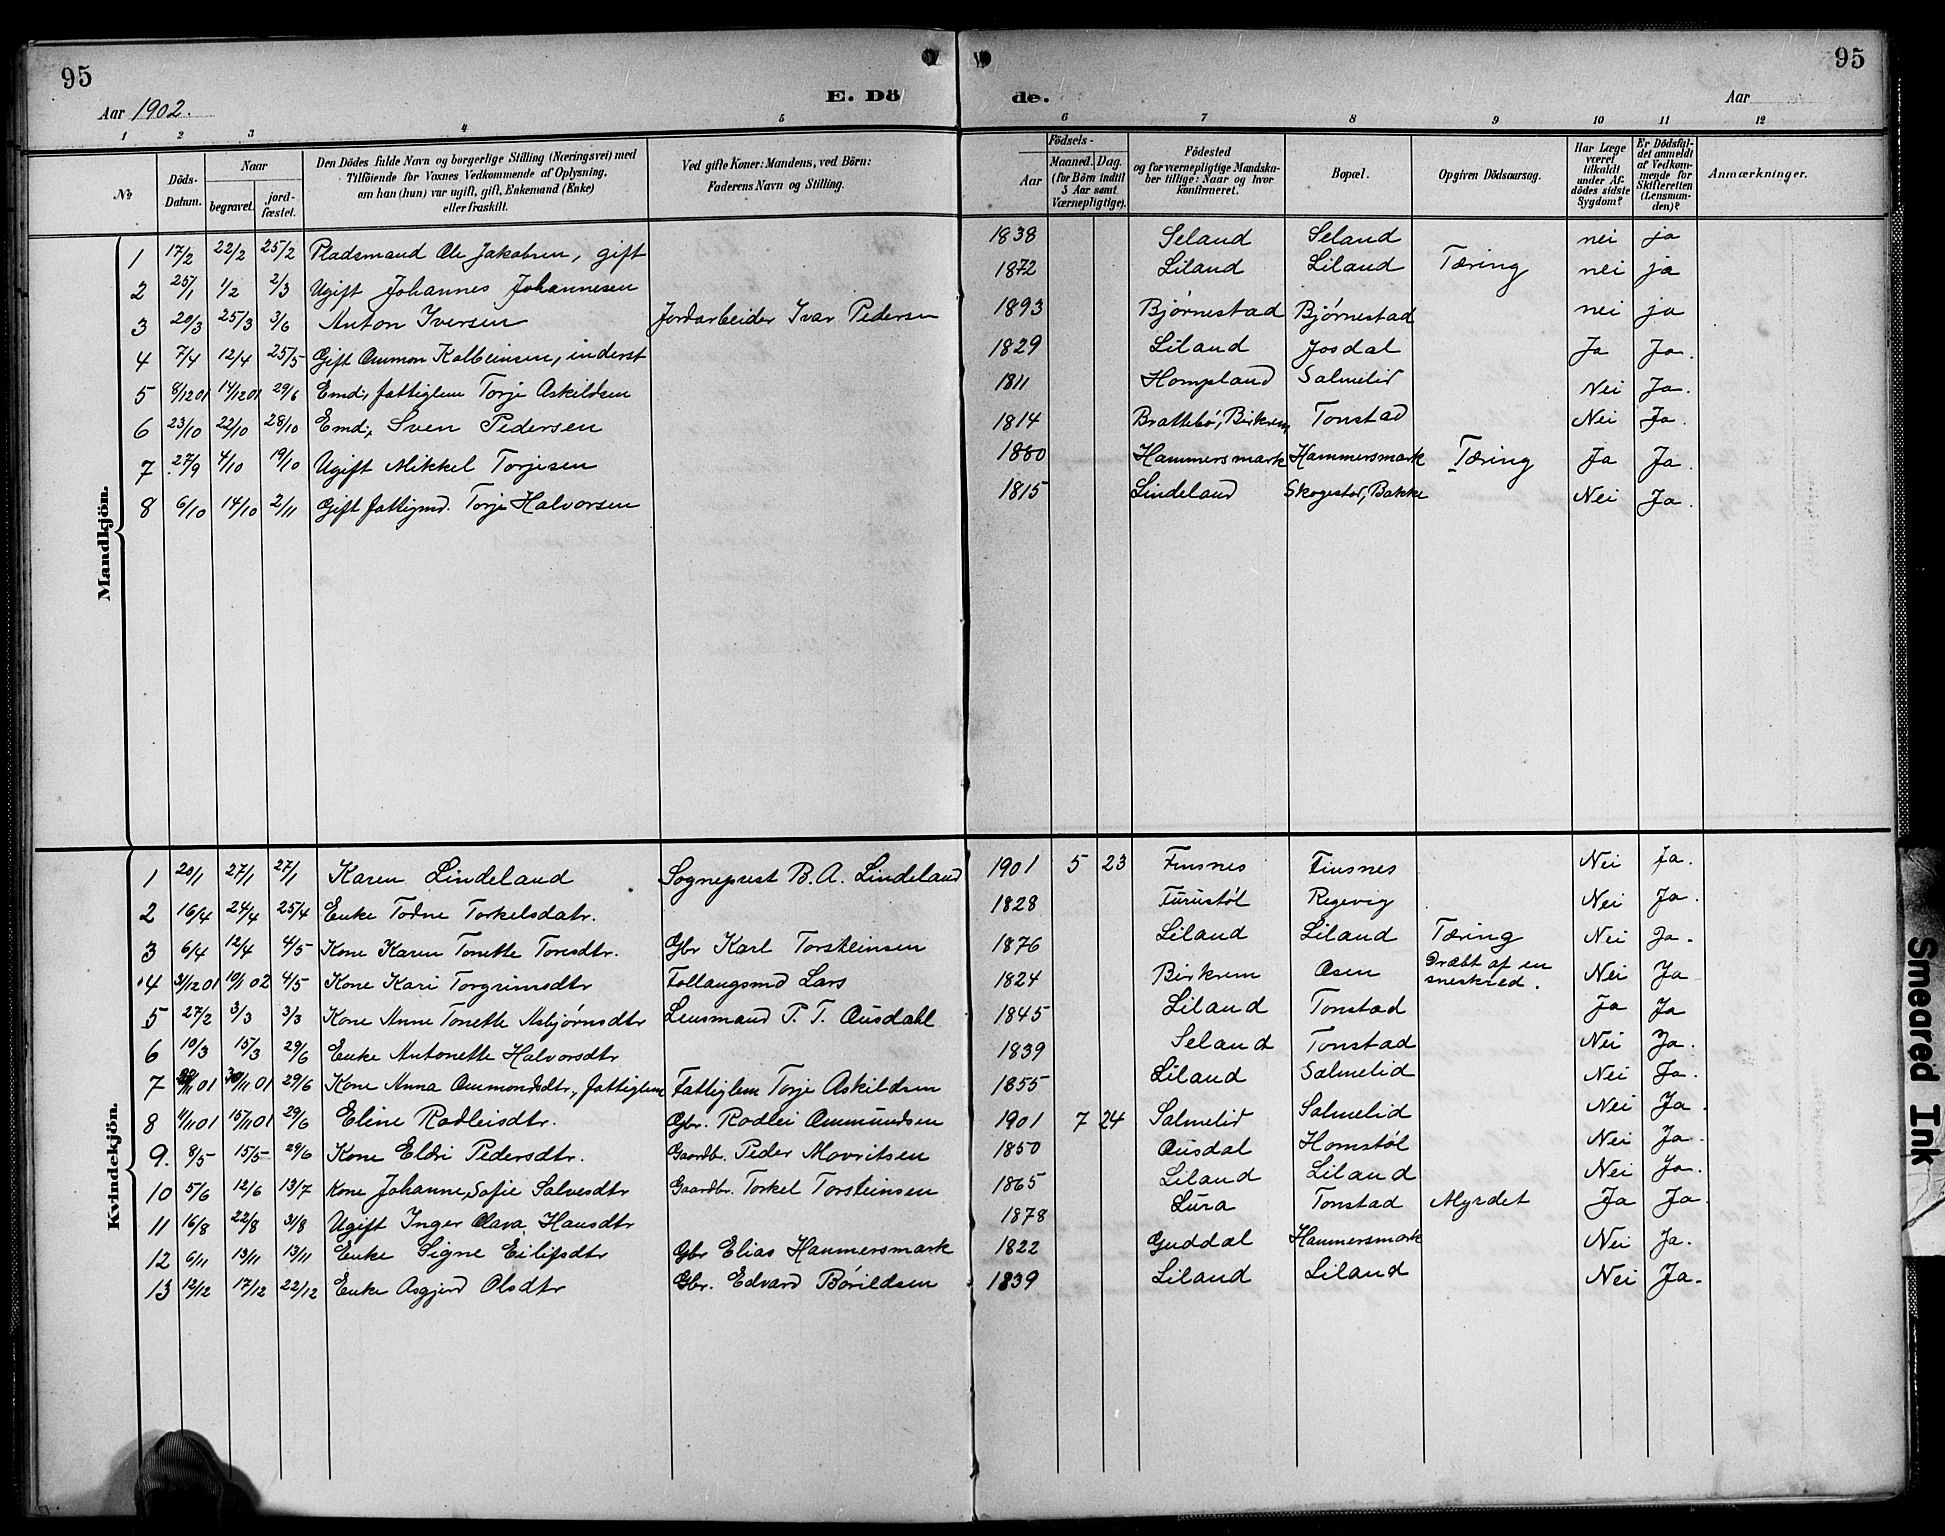 95
95
Aar 1902.
E. Dö
de.
Aar
1 2 3 4 5 6 7 8 9 10 11 12
№
Döds-Datum.
Naar
begravet.
jord-fæstet.
Den Dödes fulde Navn og borgerlige Stilling (Næringsvei) med
Tilföiende for Voxnes Vedkommende af Oplysning,
om han (hun) var ugift, gift, Enkemand (Enke)
eller fraskilt.
Ved gifte Koner: Mandens, ved Börn:
Faderens Navn og Stilling.
Födsels-
Aar
Maaned. Dag.
(for Börn indtil
5 Aar samt
Værnepligtige).
Födested
og for værnepligtige Mandska-
ber tillige: Naar og hvor
konfirmeret.
Bopæl.
Opgiven Dödsaarsag.
Har Læge
været
tilkaldt
under Af-
dödes sidste
Sygdom?
Er Dödsfal-
det anmeldt
af Vedkom-
mende for
Skifteretten
(Lensman-
den)?
Anmærkninger.
Mandkjön.
1 17/2 22/2 25/2 Pladsmand Ole Jakobsen, gift 1838 Seland Seland nei ja
2 25/1 1/2 2/3 Ugift Johannes Johannesen 1872 Liland Liland Tæring nei ja
3 20/3 25/3 3/6 Anton Iversen Jordarbeider Ivar Pedersen 1893 Bjørnestad Bjørnestad nei ja
4 7/4 12/4 25/5 Gift Ommon Kolbeinsen, inderst 1829 Liland Josdal Ja Ja.
5 8/12 01 14/12 01 29/6 Emd, fattiglem Torje Askildsen 1811 Hompland Salmelid Nei Ja.
6 23/10 22/10 28/10 Emd, Sven Pedersen 1814 Brattebø, Birkrem Tonstad Nei Ja.
7 27/9 4/10 19/10 Ugift Mikkel Torjesen 1880 Hammersmark Hammersmark Tæring Ja Ja.
8 6/10 14/10 2/11 Gift fattigmd. Torje Halvorsen 1815 Lindeland Skogestad, Bakke Nei Ja.
Kvindekjön.
1 20/1 27/1 27/1 Karen Lindeland Sogneprest B. A. Lindeland 1901 5 23 Finsnes Finsnes Nei Ja.
2 16/4 24/4 25/4 Enke Todne Torkelsdatr. 1828 Furustøl Regevig Nei Ja.
3 6/4 12/4 4/5 Kone Karen Tonette Toresdtr. Gbr Karl Torsteinsen 1876 Liland Liland Tæring Nei Ja.
4 31/12 01 10/1 02 4/5 Kone Kari Torgrimsdtr Follaugsmd Lars 1824 Birkrem Osen Dræbt af en sneskred. Nei Ja
5 27/2 3/3 3/3 Kone Anne Tonette Asbjørnsdtr Lensmand P. T. Ousdahl 1845 Liland Tonstad Ja Ja
6 10/3 15/3 29/6 Enke Antonette Halvorsdtr 1839 Seland Tonstad Nei Ja.
7 /11 01 30/11 01 29/6 Kone Anna Ommondsdtr, fattiglem Fattiglem Torje Askildsen 1855 Liland Salmelid Nei Ja.
8 4/11 01 15/11 01 29/6 Eline Rodleisdtr. Gbr. Rodlei Ommundsen 1901 7 24 Salmelid Salmelid Nei Ja.
9. 8/5 15/5 29/6 Kone Eldri Pedersdtr. Gaardbr. Peder Mouritsen 1850 Ousdal Homstøl Nei Ja.
10 5/6 12/6 13/7 Kone Johanne, Sofie Salvesdtr Gaardbr. Torkel Torsteinsen 1865 Liland Liland Nei Ja.
11 16/8 22/8 31/8 Ugift Inger Olava Hansdtr 1878 Lura Tonstad Myrdet Ja Ja.
12 6/11 13/11 13/11 Enke Signe Eilifsdtr Gbr Elias Hammersmark 1822 Guddal Hammersmark Nei Ja.
13 12/12 17/12 22/12 Enke Asgjerd Olsdtr Gbr. Edvard Børildsen 1839 Liland Liland Nei Ja.
Smeared Ink